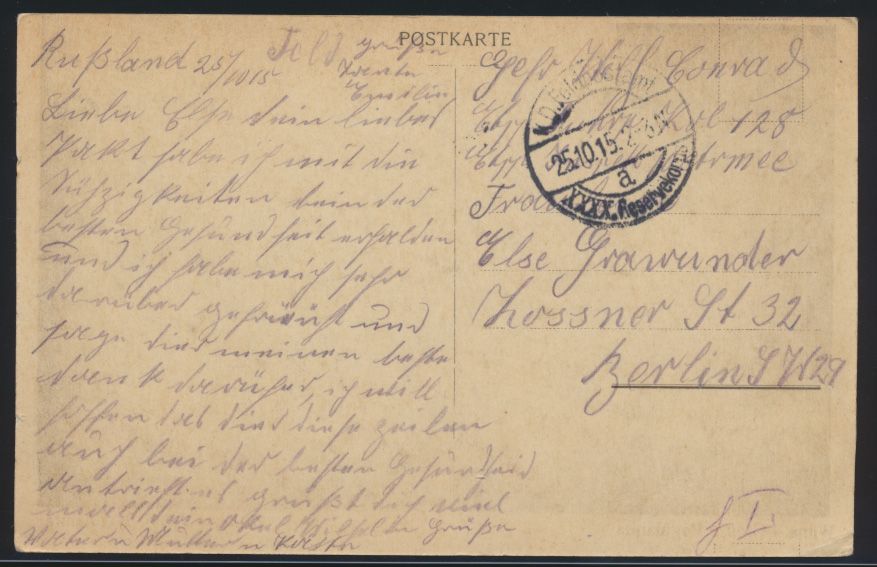 POSTKARTE
Rußland 25/10 15
Feld
grüße
Tante
Emilie
Liebe Else dein liebes
Pakt habe ich mit die
Süßigkeiten bein der
besten Gesundheit erhalden
und ich habe mich sehr
darüber gefreüht und
sage dier meinen besten
dank darüher, ich will
hoffen das dier diese zeilen
auch bei der besten Gesündheid
antrieft es grüßt dich viel
mall dein Onkel Grüße
Vatern Mutter n
Gefr Conrad
Kol 128
Armee
Else Grawunder
Zossner St 32
Berlin S W 29
K. D. Feldpostamt
25.10.15.
a
XXXX. Reservekorps